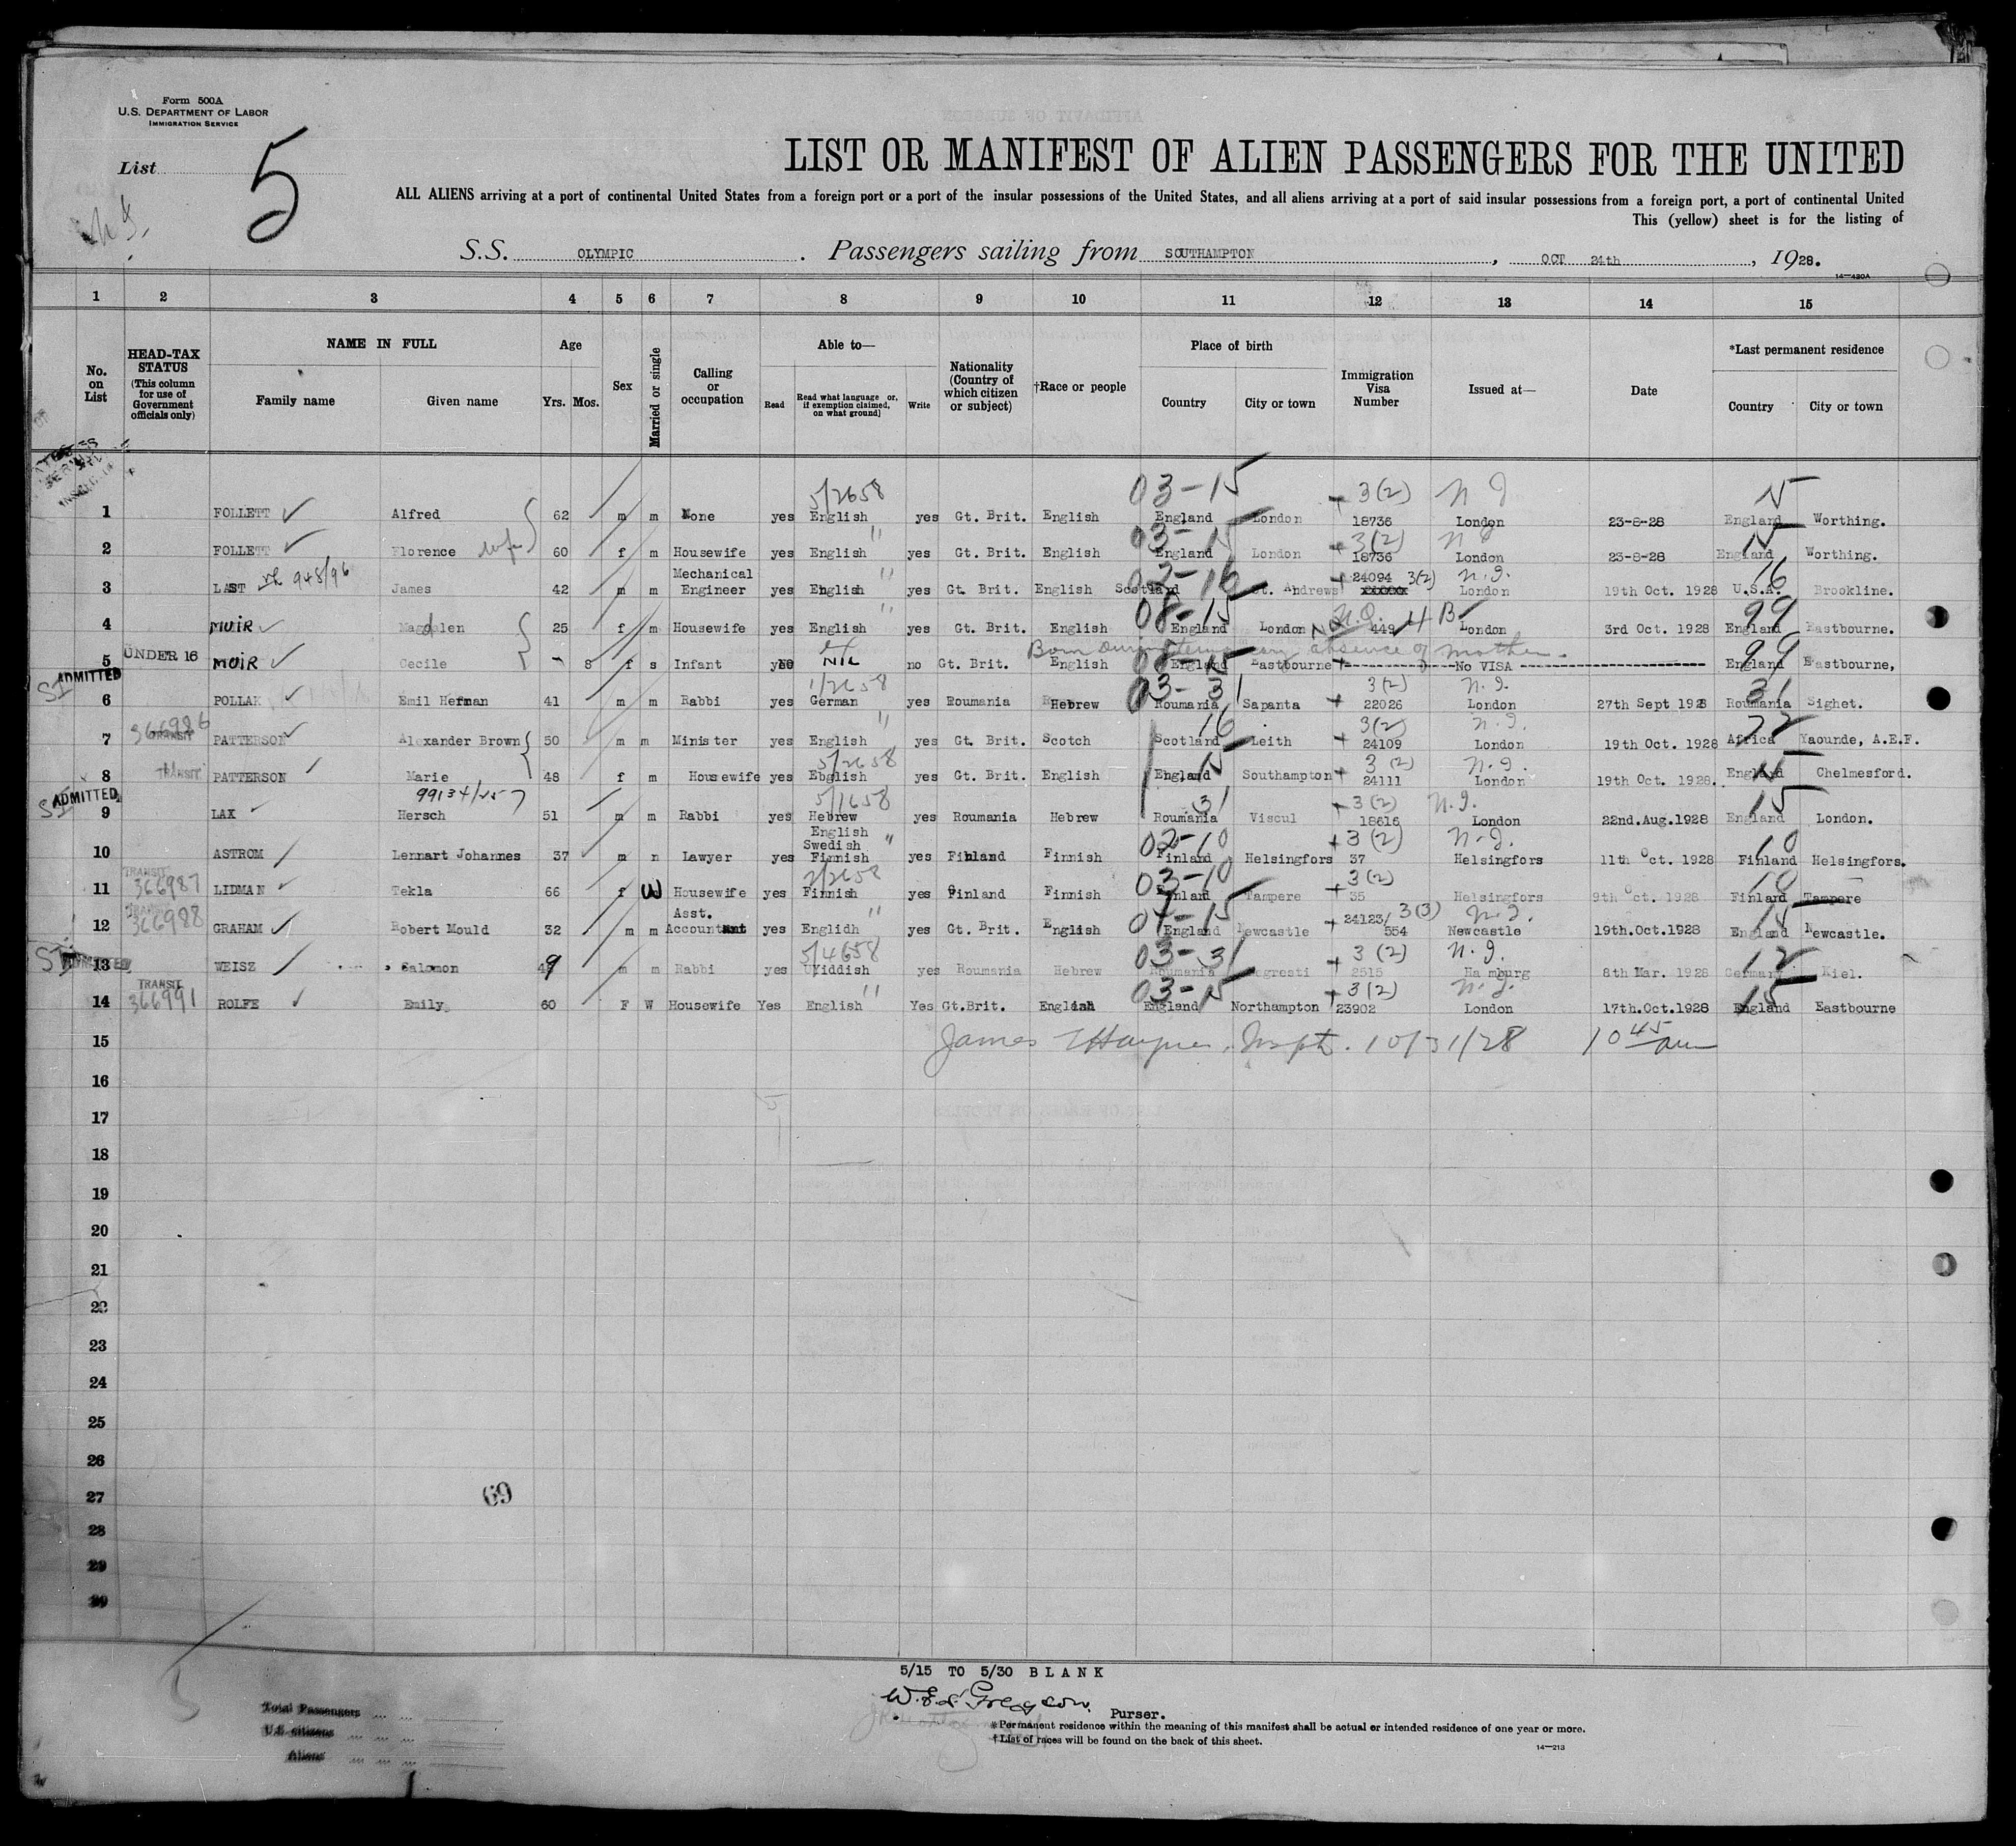 Form 500A
U.S. DEPARTMENT OF LABOR
IMMIGRATION SERVICE
List 5
LIST OR MANIFEST OF ALIEN PASSENGERS FOR THE UNITED
ALL ALIENS arriving at a port of continental United States from a foreign port or a port of the insular possessions of the United States, and all aliens arriving at a port of said insular possessions from a foreign port, a port of continental United
This (yellow) sheet is for the listing of
S.S. OLYMPIC. Passengers sailing from SOUTHAMPTON, OCT 24th, 1928.
14—420A
1 2 3 4 5 6 7 8 9 10 11 12 13 14 15
No. on List
HEAD-TAX STATUS (This column for use of Government officials only)
NAME IN FULL
Family name Given name
Age
Yrs. Mos.
Sex
Married or single
Calling or occupation
Able to—
Read Read what language or, if exemption claimed, on what ground) Write
Nationality (Country of which citizen or subject)
†Race or people
Place of birth
Country City or town
Immigration Visa Number
Issued at—
Date
*Last permanent residence
Country City or town
5/2658 03-15 3(2) N I 15
1 FOLLETT Alfred 62 m m None yes English yes Gt. Brit. English England London 18736 London 23-8-28 England Worthing.
" 03-15 3(2) 15
2 FOLLETT Florence wife 60 f m Housewife yes English yes Gt. Brit. English England London 18736 London 23-8-28 England Worthing.
948/96 " 02-16 3(2) N.I. 16
3 LAST James 42 m m Mechanical Engineer yes English yes Gt. Brit. English Scotland St. Andrews 24094 London 19th Oct. 1928 U.S.A. Brookline.
" 08-15 4 B 99
4 MUIR Magdalen 25 f m Housewife yes English yes Gt. Brit. English England London 449 London 3rd Oct. 1928 England Eastbourne.
UNDER 16 Born During temporary absence of mother. 08-15 99
5 MUIR Cecile - 8 f s Infant No Nil no Gt. Brit. English England Eastbourne No VISA England Eastbourne,
ADMITTED SI 1/2658 03-31 3(2) N.I. 31
6 POLLAK Emil Herman 41 m m Rabbi yes German yes Roumania Hebrew Roumania Sapanta 22026 London 27th Sept 1928 Roumania Sighet.
366986 TRANSIT " 16 3(2) N.I. 72
7 PATTERSON Alexander Brown 50 m m Minister yes English yes Gt. Brit. Scotch Scotland Leith 24109 London 19th Oct. 1928 Africa Yaounde, A.E.F.
TRANSIT 5/2658 15 3(2) N.I. 15
8 PATTERSON Marie 48 f m Housewife yes English yes Gt. Brit. English England Southampton 24111 London 19th Oct. 1928. England Chelmesford.
ADMITTED SI 5/1658 31 3(2) N.I. 15
9 LAX Hersch 51 m m Rabbi yes Hebrew yes Roumania Hebrew Roumania Viscul 18616 London 22nd.Aug.1928 England London.
English Swedish " 02-10 3(2) N.I. 10
10 ASTROM Lennart Johannes 37 m n Lawyer yes Finnish yes Finland Finnish Finland Helsingfors 37 Helsingfors 11th Oct. 1928 Finland Helsingfors.
TRANSIT 366987 2/2658 03-10 3(2) 10
11 LIDMAN Tekla 66 f W Housewife yes Finnish yes Finland Finnish Finland Tampere 35 Helsingfors 9th Oct. 1928 Finland Tampere
TRANSIT 366988 Asst. " 01-15 3(3) N.I. 15
12 GRAHAM Robert Mould 32 m m Accountant yes Englidh yes Gt. Brit. English England Newcastle 24123/554 Newcastle 19th.Oct.1928 England Newcastle.
SI ADMITTED 5/4658 03-31 3(2) N.I. 12
13 WEISZ Salomon 49 m m Rabbi yes Yiddish yes Roumania Hebrew Roumania Negresti 2515 Hamburg 8th Mar. 1928 Germany Kiel.
TRANSIT 366991 " 03-15 3(2) N.I. 15
14 ROLFE Emily 60 F W Housewife Yes English Yes Gt.Brit. English England Northampton 23902 London 17th.Oct.1928 England Eastbourne
15 James Inspt. 10/31/28 10 45 am
16
17
18
19
20
21
22
23
24
25
26
27 69
28
29
30
5/15 TO 5/30 BLANK
Purser.
*Permanent residence within the meaning of this manifest shall be actual or intended residence of one year or more.
†List of races will be found on the back of this sheet.
14—213
Total Passengers
U.S. citizens
Aliens